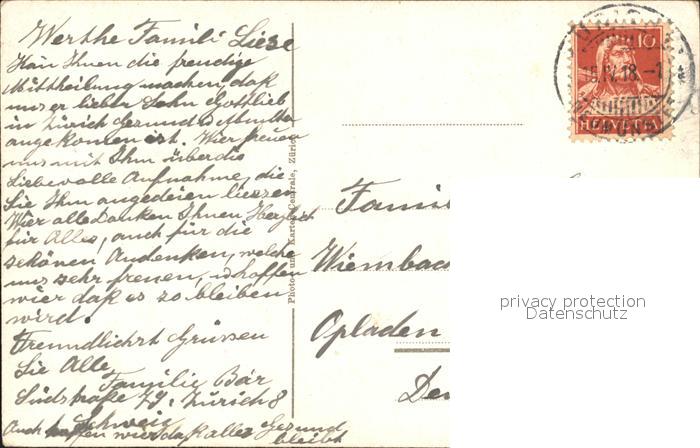 Werthe Famili Liese
Kan Ihnen die freudige
Mittheilung machen, daß
unser lieber Sohn Gottlieb
in Zürich Gesund & Munter
angekomen ist. Wier freuen
uns mit Ihm über die
Liebevolle Aufnahme, die
Sie Ihm angedeien liessen
Wier alle Danken Ihnen Herzlich
für Alles, auch für die
schönen Andenken, welche
uns sehr freuen, u. hoffen
wier daß es so bleiben
wird.
Freundlichst Grüssen
Sie Alle
Familie Bär
Südstraße 79. Zürich 8
Schweiz
Auch hoffen wier daß alles Gesund
bleibt
Photo- und Karten-Centrale, Zürich
10
HELVETIA
15.IV.18.-1
Famil
Wiembac
Opladen
De
privacy protection
Datenschutz